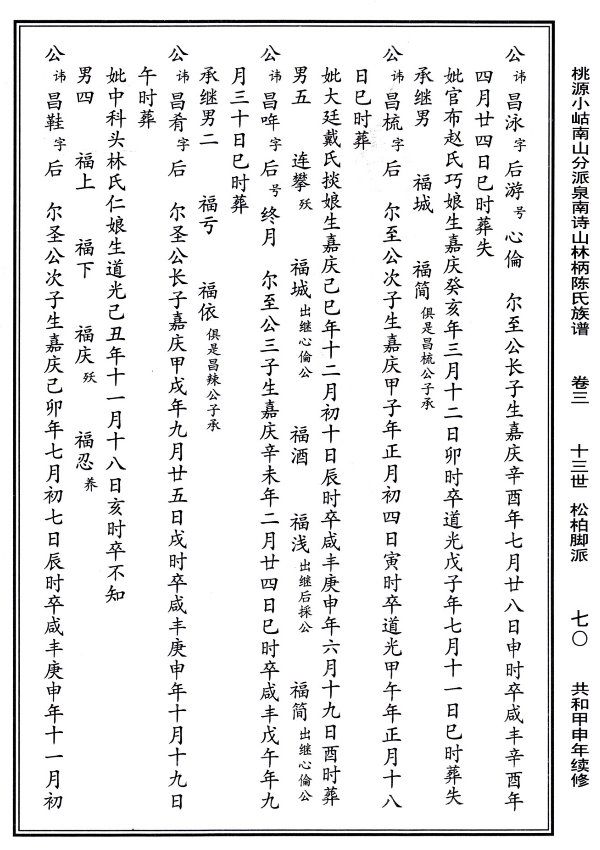 桃源小岵南山分派泉南诗山林柄陈氏族谱 卷三 十三世 松柏脚派 七〇 共和甲申年续修
公 讳 昌泳 字 后游 号 心倫 尔至公长子生嘉庆辛酉年七月廿八日申时卒咸丰辛酉年
四月廿四日巳时葬失
妣官布赵氏巧娘生嘉庆癸亥年三月十二日卯时卒道光戊子年七月十一日巳时葬失
承继男 福城 福简 俱是昌梳公子承
公 讳 昌梳 字 后 尔至公次子生嘉庆甲子年正月初四日寅时卒道光甲午年正月十八
日巳时葬
妣大廷戴氏掞娘生嘉庆己巳年十二月初十日辰时卒咸丰庚申年六月十九日酉时葬
男五 连攀 殀 福城 出继心倫公 福酒 福浅 出继后採公 福简 出继心倫公
公 讳 昌哖 字 后 号 终月 尔至公三子生嘉庆辛未年二月廿四日巳时卒咸丰戊午年九
月三十日巳时葬
承继男二 福亏 福依 俱是昌辣公子承
公 讳 昌肴 字 后 尔圣公长子嘉庆甲戌年九月廿五日戌时卒咸丰庚申年十月十九日
午时葬
妣中科头林氏仁娘生道光己丑年十一月十八日亥时卒不知
男四 福上 福下 福庆 殀 福忍 养
公 讳 昌鞋 字 后 尔圣公次子生嘉庆己卯年七月初七日辰时卒咸丰庚申年十一月初